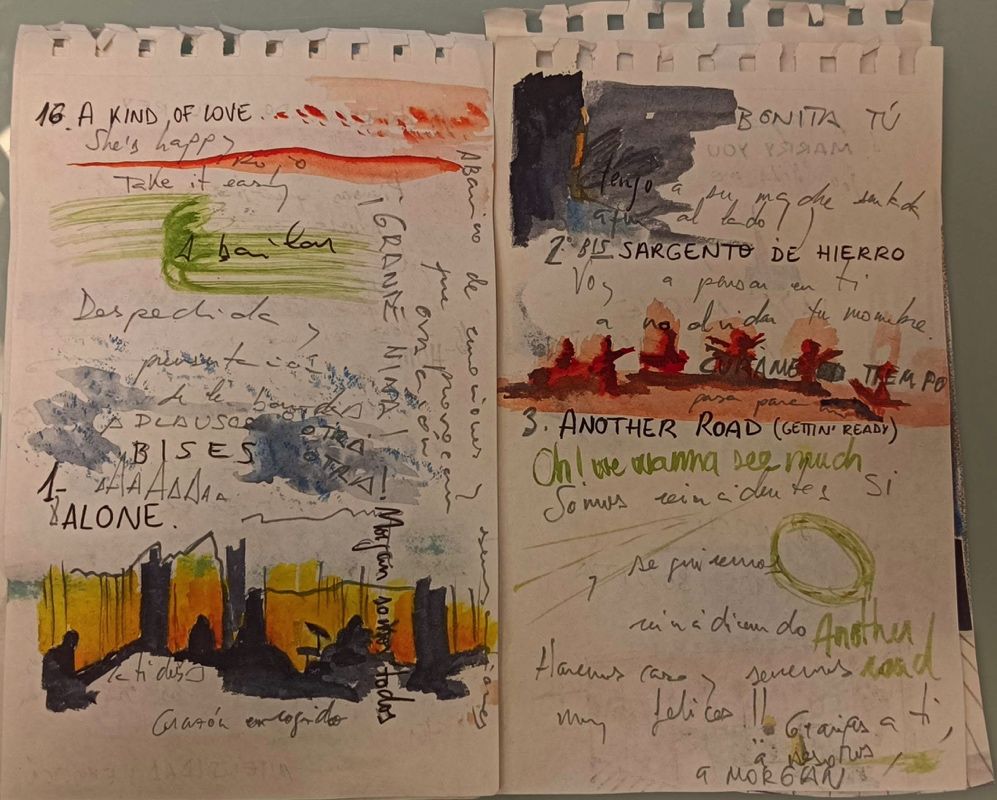 16. A KIND OF LOVE.
She's happy
Rojo
Take it easy
A bailar
Despedida y
presentación
de la banda
APLAUSOS
¡OTRA!
BISES
¡OTRA!
1- AAAAAAA
ALONE.
Latidos
Corazón encogido
¡GRANDE NINA!
¡Morgan somos todos
Abanico de emociones y
que provocan
ovación
BONITA TÚ
MARRY YOU
tengo a su madre sentada
aquí al lado
2º BIS SARGENTO DE HIERRO
Voy a pensar en ti
a no olvidar tu nombre
CÚRAME TIEMPO
pasa para
3. ANOTHER ROAD (GETTIN' READY)
Oh! we wanna see much
Somos reincidentes Si
y seguiremos
reincidiendo Another
road
Haremos caso y seremos
muy felices!!
Gracias a ti,
a nosotros,
a MORGAN